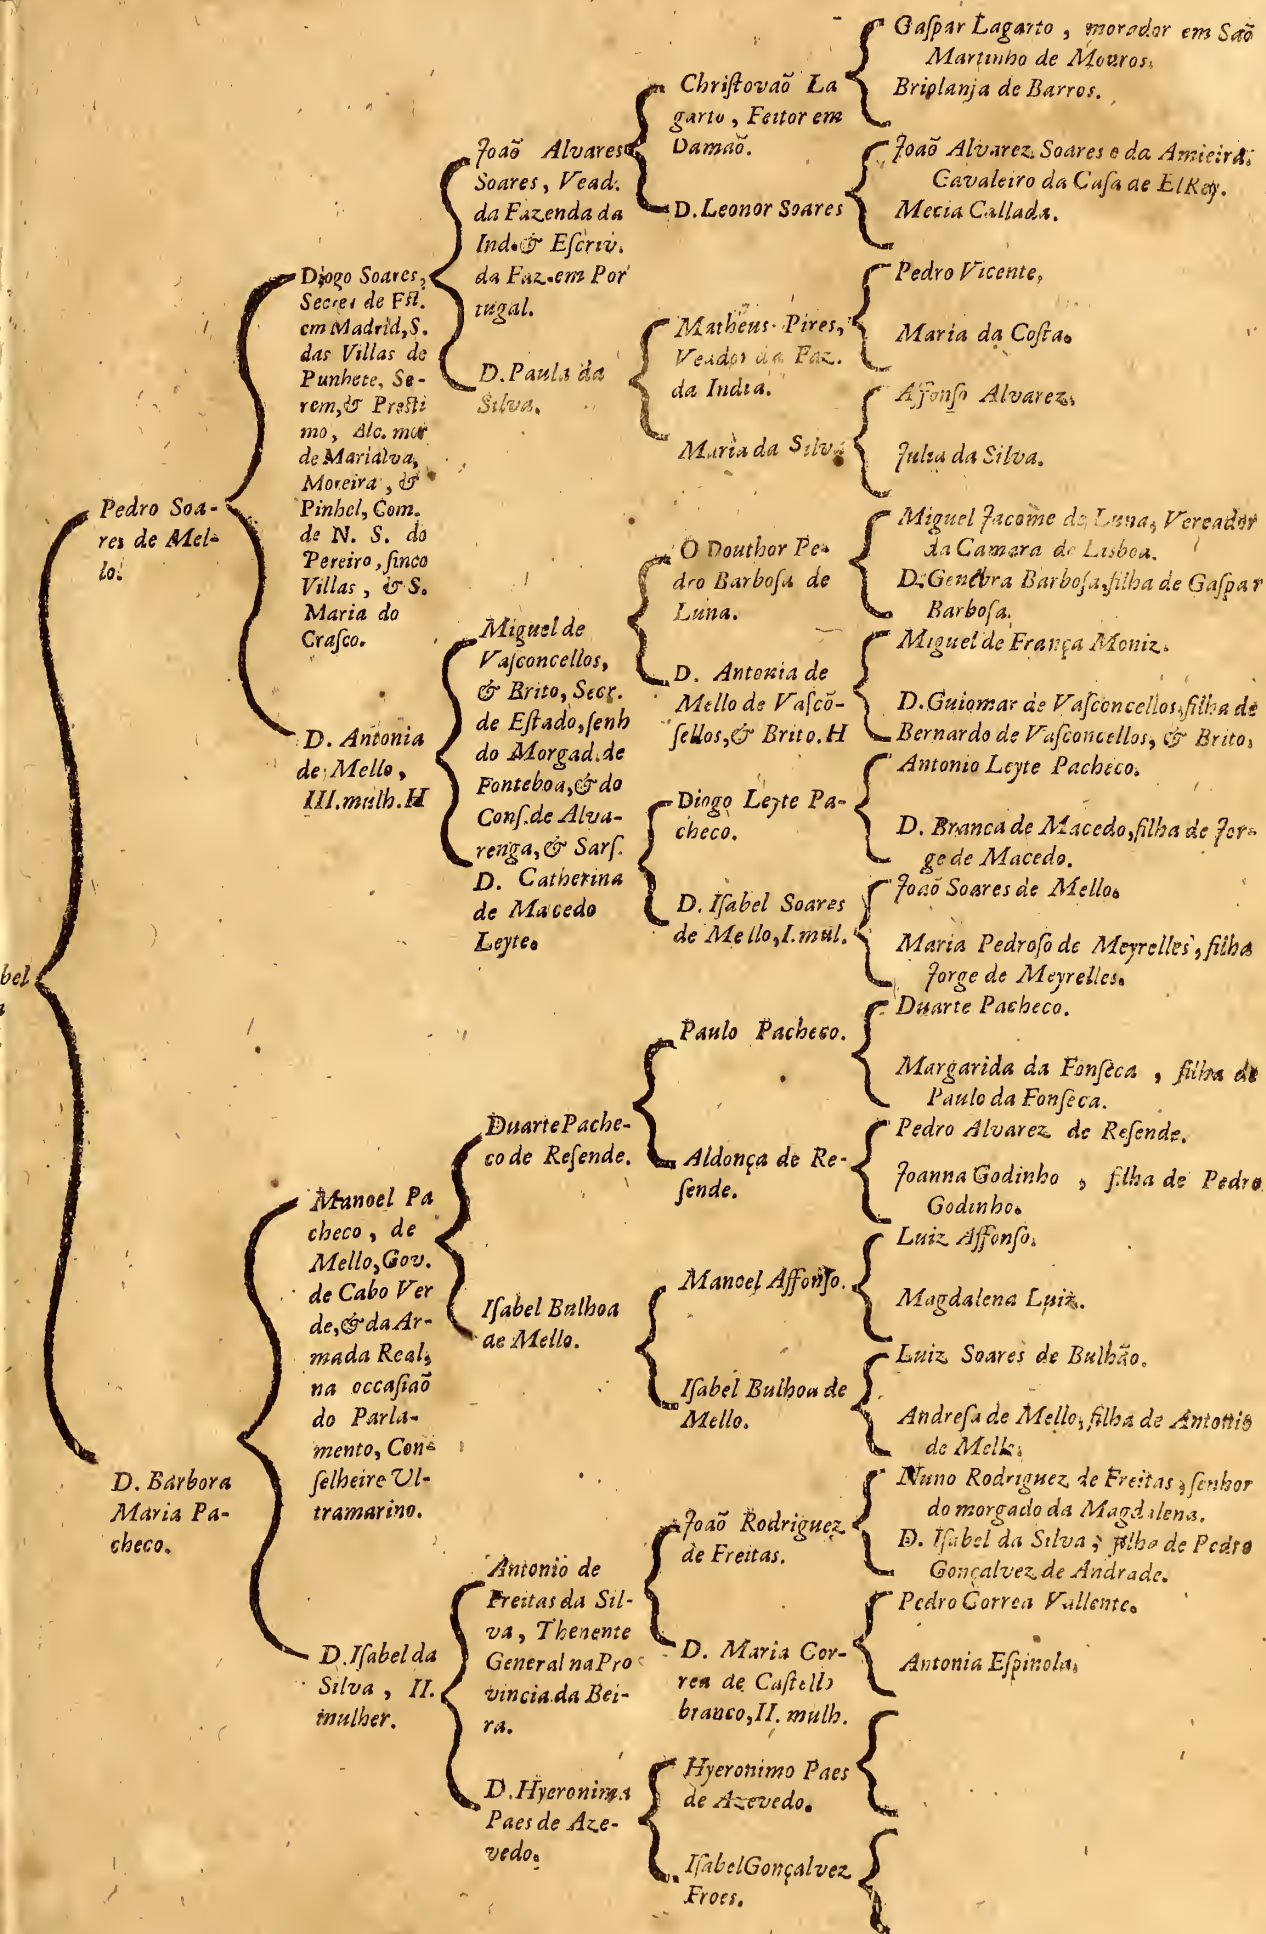 bel
Pedro Soa-
res de Mel-
lo.
D. Barbora
Maria Pa-
checo.
Diogo Soares,
Secret de Est.
em Madrid, S.
das Villas de
Punhete, Se-
rem, & Presti
mo, Alc. mor
de Marialva,
Moreira, &
Pinhel, Com.
de N. S. do
Pereiro, sinco
Villas, & S.
Maria do
Crasco.
D. Antonia
de Mello,
III. mulh. H
Manoel Pa
checo, de
Mello, Gov.
de Cabo Ver
de, & da Ar-
mada Real,
na occasiaõ
do Parla-
mento, Con-
selheiro Ul-
tramarino.
D. Isabel da
Silva, II.
mulher.
Joaõ Alvares
Soares, Vead.
da Fazenda da
Ind. & Escriv.
da Faz. em Por
tugal.
D. Paula da
Silva.
Miguel de
Vasconcellos,
& Brito, Secr.
de Estado, senh
do Morgad. de
Fonteboa, & do
Cons. de Alva-
renga, & Sars.
D. Catherina
de Macedo
Leyte.
Duarte Pache-
co de Resende.
Isabel Bulhoa
de Mello.
Antonio de
Freitas da Sil-
va, Thenente
General na Pro
vincia da Bei-
ra.
D. Hyeronima
Paes de Aze-
vedo.
Christovaõ La
garto, Feitor em
Damaõ.
D. Leonor Soares
Matheus Pires,
Veador da Faz.
da India.
Maria da Silva
O Douthor Pe-
dro Barbosa de
Luna.
D. Antonia de
Mello de Vascõ-
sellos, & Brito. H
Diogo Leyte Pa-
checo.
D. Isabel Soares
de Mello, I. mul.
Paulo Pacheco.
Aldonça de Re-
sende.
Manoel Affonso.
Isabel Bulhoa de
Mello.
Joaõ Rodriguez
de Freitas.
D. Maria Cor-
rea de Castello
branco, II. mulh.
Hyeronimo Paes
de Azevedo.
Isabel Gonçalvez
Froes.
Gaspar Lagarto, morador em Saõ
Martinho de Mouros.
Briolanja de Barros.
Joaõ Alvarez Soares o da Amieira.
Cavaleiro da Casa de ElRey.
Mecia Callada.
Pedro Vicente,
Maria da Costa.
Affonso Alvarez.
Julia da Silva.
Miguel Jacome de Luna, Vereador
da Camara de Lisboa.
D. Genebra Barbosa, filha de Gaspar
Barbosa.
Miguel de França Moniz.
D. Guiomar de Vasconcellos, filha de
Bernardo de Vasconcellos, & Brito.
Antonio Leyte Pacheco.
D. Branca de Macedo, filha de Jor-
ge de Macedo.
Joaõ Soares de Mello.
Maria Pedroso de Meyrelles, filha
Jorge de Meyrelles.
Duarte Pacheco.
Margarida da Fonseca, filha de
Paulo da Fonseca.
Pedro Alvarez de Resende.
Joanna Godinho, filha de Pedro
Godinho.
Luiz Affonso.
Magdalena Luiz.
Luiz Soares de Bulhão.
Andresa de Mello, filha de Antonio
de Mello.
Nuno Rodriguez de Freitas, senhor
do morgado da Magdalena.
D. Isabel da Silva, filha de Pedro
Gonçalvez de Andrade.
Pedro Correa Vallente.
Antonia Espinola.